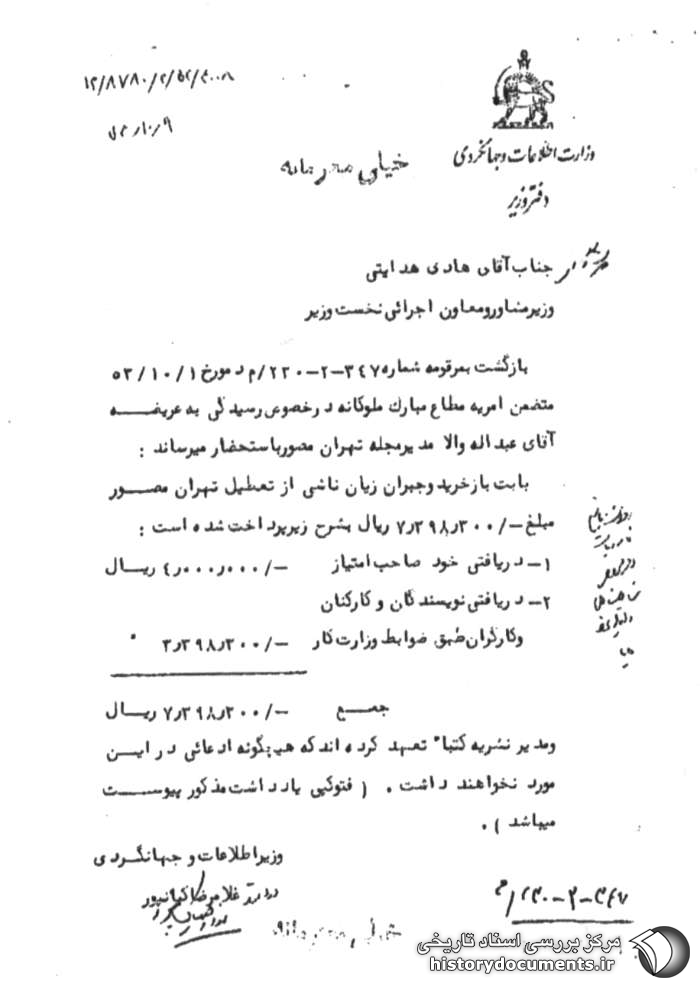 ۱۲/۸۷۸۰/۲/۵۲/۳۰۰۸
وزارت اطلاعات و جهانگردی
دفتر وزیر
خیلی محرمانه
جناب آقای هادی هدایتی
وزیر مشاور و معاون اجرائی نخست وزیر
بازگشت بمرقومه شماره ۳۴۷-۲-۲۳۰/م د مورخ ۵۳/۱۰/۱
متضمن امریه مطاع مبارک ملوکانه در خصوص رسیدگی به عریضه
آقای عبداله والا مدیر مجله تهران مصور باستحضار میرساند :
بابت بازخرید و جبران زیان ناشی از تعطیل تهران مصور
مبلغ -/۷٫۳۹۸٫۳۰۰ ریال بشرح زیر پرداخت شده است :
۱- دریافتی خود صاحب امتیاز -/۴٫۰۰۰٫۰۰۰ ریال
۲- دریافتی نویسندگان و کارکنان
و کارگران طبق ضوابط وزارت کار -/۳٫۳۹۸٫۳۰۰ "
جمع -/۷٫۳۹۸٫۳۰۰ ریال
و مدیر نشریه کتبا" تعهد کرده اند که هیچگونه ادعائی در این
مورد نخواهند داشت . ( فتوکپی یادداشت مذکور پیوست
میباشد ) .
وزیر اطلاعات و جهانگردی
غلامرضا کیانپور
خیلی محرمانه
مرکز بررسی اسناد تاریخی
historydocuments.ir